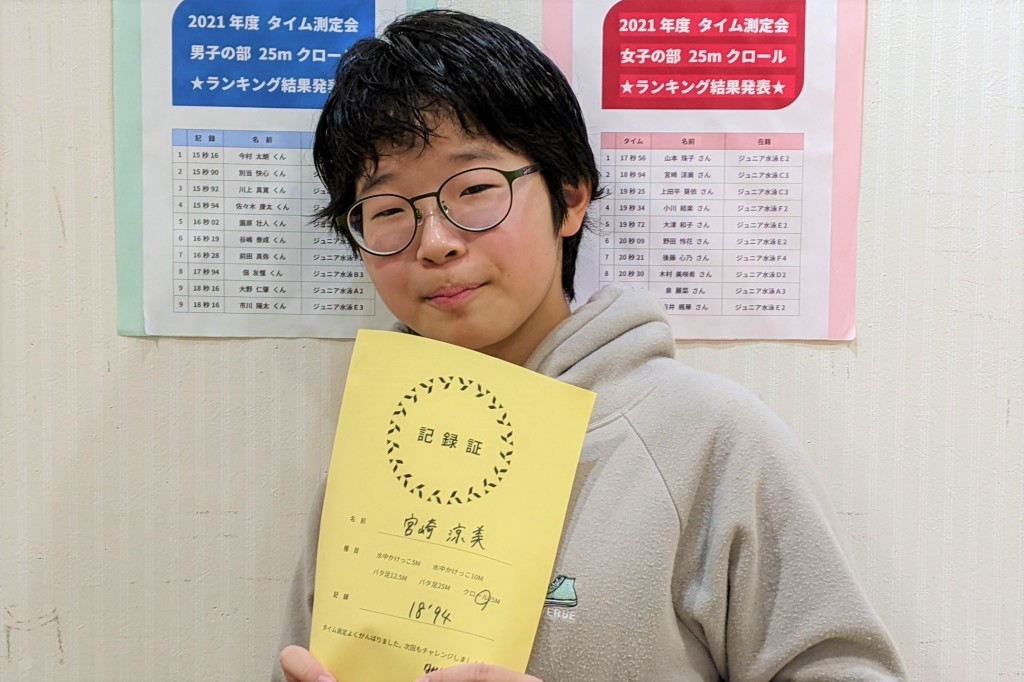 2021年度 タイム測定会
男子の部 25m クロール
★ランキング結果発表
記録 名前
1 15秒16 今村 太朗 くん
2 15秒90 別当 快心 くん
3 15秒92 川上 真寛 くん
4 15秒94 佐々木 康太 くん
5 16秒02 園原 壮人 くん
6 16秒19 谷嶋 泰成 くん
7 16秒28 前田 真弥 くん
8 17秒94 佃 友惺 くん ジュニア水泳B3
9 18秒16 大野 仁肇 くん ジュニア水泳A2
9 18秒16 市川 陽太 くん ジュニア水泳E3
2021年度 タイム測定会
女子の部 25m クロール
★ランキング結果発表★
タイム 名前 在籍
1 17秒56 山本 珠子 さん ジュニア水泳E2
2 18秒94 宮崎 涼美 さん ジュニア水泳C3
3 19秒25 上田平 葵依 さん ジュニア水泳C3
4 19秒34 小川 結楽 さん ジュニア水泳F2
5 19秒72 大津 和子 さん ジュニア水泳E2
6 20秒09 野田 怜花 さん ジュニア水泳E2
7 20秒21 後藤 心乃 さん ジュニア水泳F4
8 20秒30 木村 美咲希 さん ジュニア水泳D2
泉 麗菜 さん ジュニア水泳A3
井 楓華 さん ジュニア水泳E2
記録証
名前 宮崎 涼美
種目 水中かけっこ5M 水中かけっこ10M
バタ足12.5M バタ足25M クロール25M
記録 18'94
タイム測定よくがんばりました。次回もチャレンジしまし